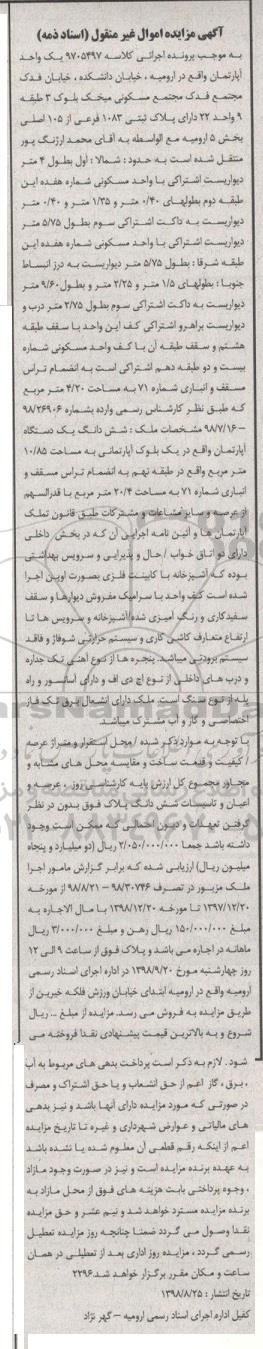 آگهی مزایده اموال غیر منقول (اسناد ذمه)
به موجب پرونده اجرائی کلاسه ۹۷۰۵۴۹۷ یک واحد
آپارتمان واقع در ارومیه ، خیابان دانشکده ، خیابان فدک
مجتمع فدک مجتمع مسکونی میخک بلوک ۳ طبقه
۹ واحد ۲۲ دارای پلاک ثبتی ۱۰۸۳ فرعی از ۱۰۵ اصلی
بخش ۵ ارومیه مع الواسطه به آقای محمد ارژنگ پور
منتقل شده است به حدود : شمالا : اول بطول ۴ متر
دیواریست اشتراکی با واحد مسکونی شماره هفده این
طبقه دوم بطولهای ۰/۴۰ متر و ۱/۳۵ متر و ۰/۴۰ متر
دیواریست به داکت اشتراکی سوم بطول ۵/۷۵ متر
دیواریست اشتراکی با واحد مسکونی شماره هفده این
طبقه شرقا : بطول ۵/۷۵ متر دیواریست به درز انبساط
جنوبا : بطولهای ۱/۵ متر و ۲/۲۵ متر و بطول ۹/۶۰ متر
دیواریست به داکت اشتراکی سوم بطول ۲/۷۵ متر درب و
دیواریست براهرو اشتراکی کف این واحد با سقف طبقه
هشتم و سقف طبقه آن با کف واحد مسکونی شماره
بیست و دو طبقه دهم اشتراکی است به انضمام تراس
مسقف و انباری شماره ۷۱ به مساحت ۴/۲۰ متر مربع
که طبق نظر کارشناس رسمی وارده بشماره ۹۸/۲۶۹۰۶
– ۹۸/۷/۱۶ مشخصات ملک : شش دانگ یک دستگاه
آپارتمان واقع در یک بلوک آپارتمانی به مساحت ۱۰/۸۵
متر مربع واقع در طبقه نهم به انضمام تراس مسقف و
انباری شماره ۷۱ به مساحت ۲۰/۴ متر مربع با قدرالسهم
از عرصه و سایر مشاعات و مشترکات طبق قانون تملک
آپارتمان ها و آئین نامه اجرایی آن که در بخش داخلی
دارای دو اتاق خواب / حال و پذیرایی و سرویس بهداشتی
بوده که آشپزخانه با کابینت فلزی بصورت اوپن اجرا
شده است کف واحد با سرامیک مفروش دیوارها و سقف
سفیدکاری و رنگ آمیزی شده/آشپزخانه و سرویس ها تا
ارتفاع متعارف کاشی کاری و سیستم حرارتی شوفاژ و فاقد
سیستم برودتی میباشد. پنجره ها از نوع آهنی تک جداره
و درب های داخلی از نوع اچ دی اف و دارای آسانسور و راه
پله از نوع سنگ است. ملک دارای انشعال برق تک فاز
اختصاصی و گاز و آب مشترک میباشد.
با توجه به موارد ذکر شده / محل استقرار و متراژ عرصه
/ کیفیت و قدمت ساخت و مقایسه محل های مشابه و
مجاور مجموع کل ارزش پایه کارشناسی روز ، عرصه و
اعیان و تاسیسات شش دانگ پلاک فوق بدون در نظر
گرفتن تعهدات و دیون احتمالی که ممکن است وجود
داشته باشد جمعا ۲/۰۵۰/۰۰۰/۰۰۰ ریال (دو میلیارد و پنجاه
میلیون ریال) ارزیابی شده که برابر گزارش مامور اجرا
ملک مزبور در تصرف ۹۸/۳۰۷۴۶ – ۹۸/۸/۲۱ از مورخه
۱۳۹۷/۱۲/۲۰ تا مورخه ۱۳۹۸/۱۲/۲۰ با مال الاجاره به
مبلغ ۱۵۰/۰۰۰/۰۰۰ ریال رهن و مبلغ ۳/۰۰۰/۰۰۰ ریال
ماهانه در اجاره می باشد و پلاک فوق از ساعت ۹ الی ۱۲
روز چهارشنبه مورخ ۱۳۹۸/۹/۲۰ در اداره اجرای اسناد رسمی
ارومیه واقع در ارومیه ابتدای خیابان ورزش فلکه خیرین از
طریق مزایده به فروش می رسد. مزایده از مبلغ ... ریال
شروع و به بالاترین قیمت پیشنهادی نقدا فروخته می
شود . لازم به ذکر است پرداخت بدهی های مربوط به آب
، برق ، گاز اعم از حق انشعاب و یا حق اشتراک و مصرف
در صورتی که مورد مزایده دارای آنها باشد و نیز بدهی
های مالیاتی و عوارض شهرداری و غیره تا تاریخ مزایده
اعم از اینکه رقم قطعی آن معلوم شده یا نشده باشد
به عهده برنده مزایده است و نیز در صورت وجود مازاد
، وجوه پرداختی بابت هزینه های فوق از محل مازاد به
برنده مزایده مسترد خواهد شد و نیم عشر و حق مزایده
نقدا وصول می گردد ضمنا چنانچه روز مزایده تعطیل
رسمی گردد ، مزایده روز اداری بعد از تعطیلی در همان
ساعت و مکان مقرر برگزار خواهد شد.۲۲۹۶
تاریخ انتشار : ۱۳۹۸/۸/۲۵
کفیل اداره اجرای اسناد رسمی ارومیه – گهر نژاد